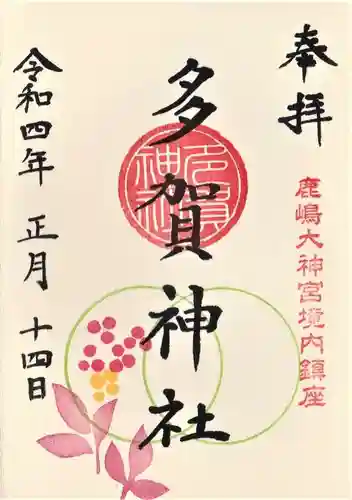 奉拝
鹿嶋大神宮境内鎮座
多賀神社
多賀神社
令和四年 正月 十四日